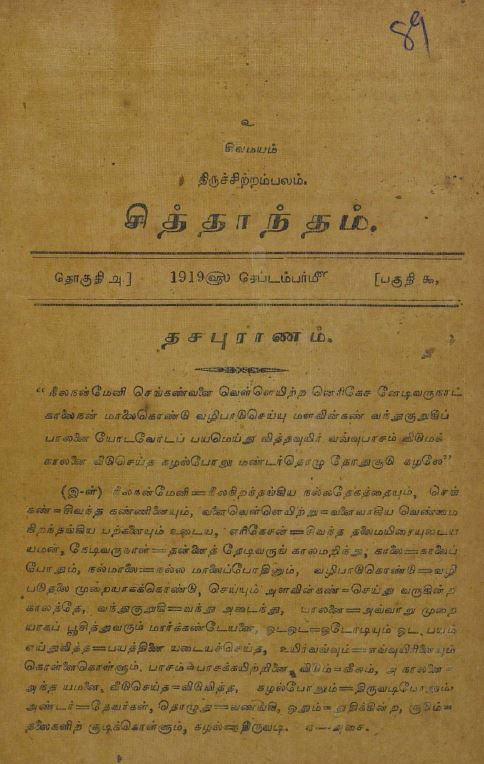 89
உ
சிவமயம்
திருச்சிற்றம்பலம்.
சித்தாந்தம்.
தொகுதி அ] 1919௵ செப்டம்பர்௴ [பகுதி ௯,
தசபுராணம்.
“ நீலநன்மேனி செங்கண்வளை வெள்ளெயிற்ற னெரிகேச னேடிவருநாட்
காலைநன் மாலைகொண்டு வழிபாடுசெய்யு மளவின்கண் வந்துகுறுகிப்
பாலனை யோடவோடப் பயமெய்து வித்தவுயிர் வவ்வுபாசம் விடுமக்
காலனை வீடுசெய்த கழல்போலு மண்டர்தொழு தோதுசூடு கழலே”
(இ-ள்) நீலநன்மேனி=நீலநிறந்தங்கிய நல்லதேகத்தையும், செங்
கண்=சிவந்த கண்ணினையும், வளைவெள்ளெயிற்று=வளைவாகிய வெண்மை
நிறந்தங்கிய பற்களையும் உடைய, எரிகேசன்=சிவந்த தலைமயிரையுடைய
யமன், நேடிவருநாள்=தன்னைத் தேடிவருங் காலமறிந்து, காலை=காலைப்
போதும், நல்மாலை=நல்ல மாலைப்போதினும், வழிபாடுகொண்டு=வழி
படுதலை முறையாகக்கொண்டு, செய்யும் அளவின்கண்=செய்து வருகின்ற
காலத்தே, வந்துகுறுகி=வந்து அடைந்து, பாலனை=அவ்வாறு முறை
யாகப் பூசித்துவரும் மார்க்கண்டேயனை, ஓடஓட=ஓடோடியும் ஓட, பயம்
எய்துவித்த=பயத்தினை யடையச்செய்த, உயிர்வவ்வும்=எவ்வுயிரினையும்
கொள்ளைகொள்ளும், பாசம்=பாசக்கயிற்றினை, விடும்=வீசும், அ காலனை=
அந்த யமனை, வீடுசெய்த=விடுவித்த, கழல்போலும்=திருவடிபோலும்,
அண்டர்=தேவர்கள், தொழுது=வணங்கி, ஓதும்=துதிக்கின்ற, சூடும்=
தலைகளிற் சூடிக்கொள்ளும், கழல்=திருவடி. ஏ—அசை.